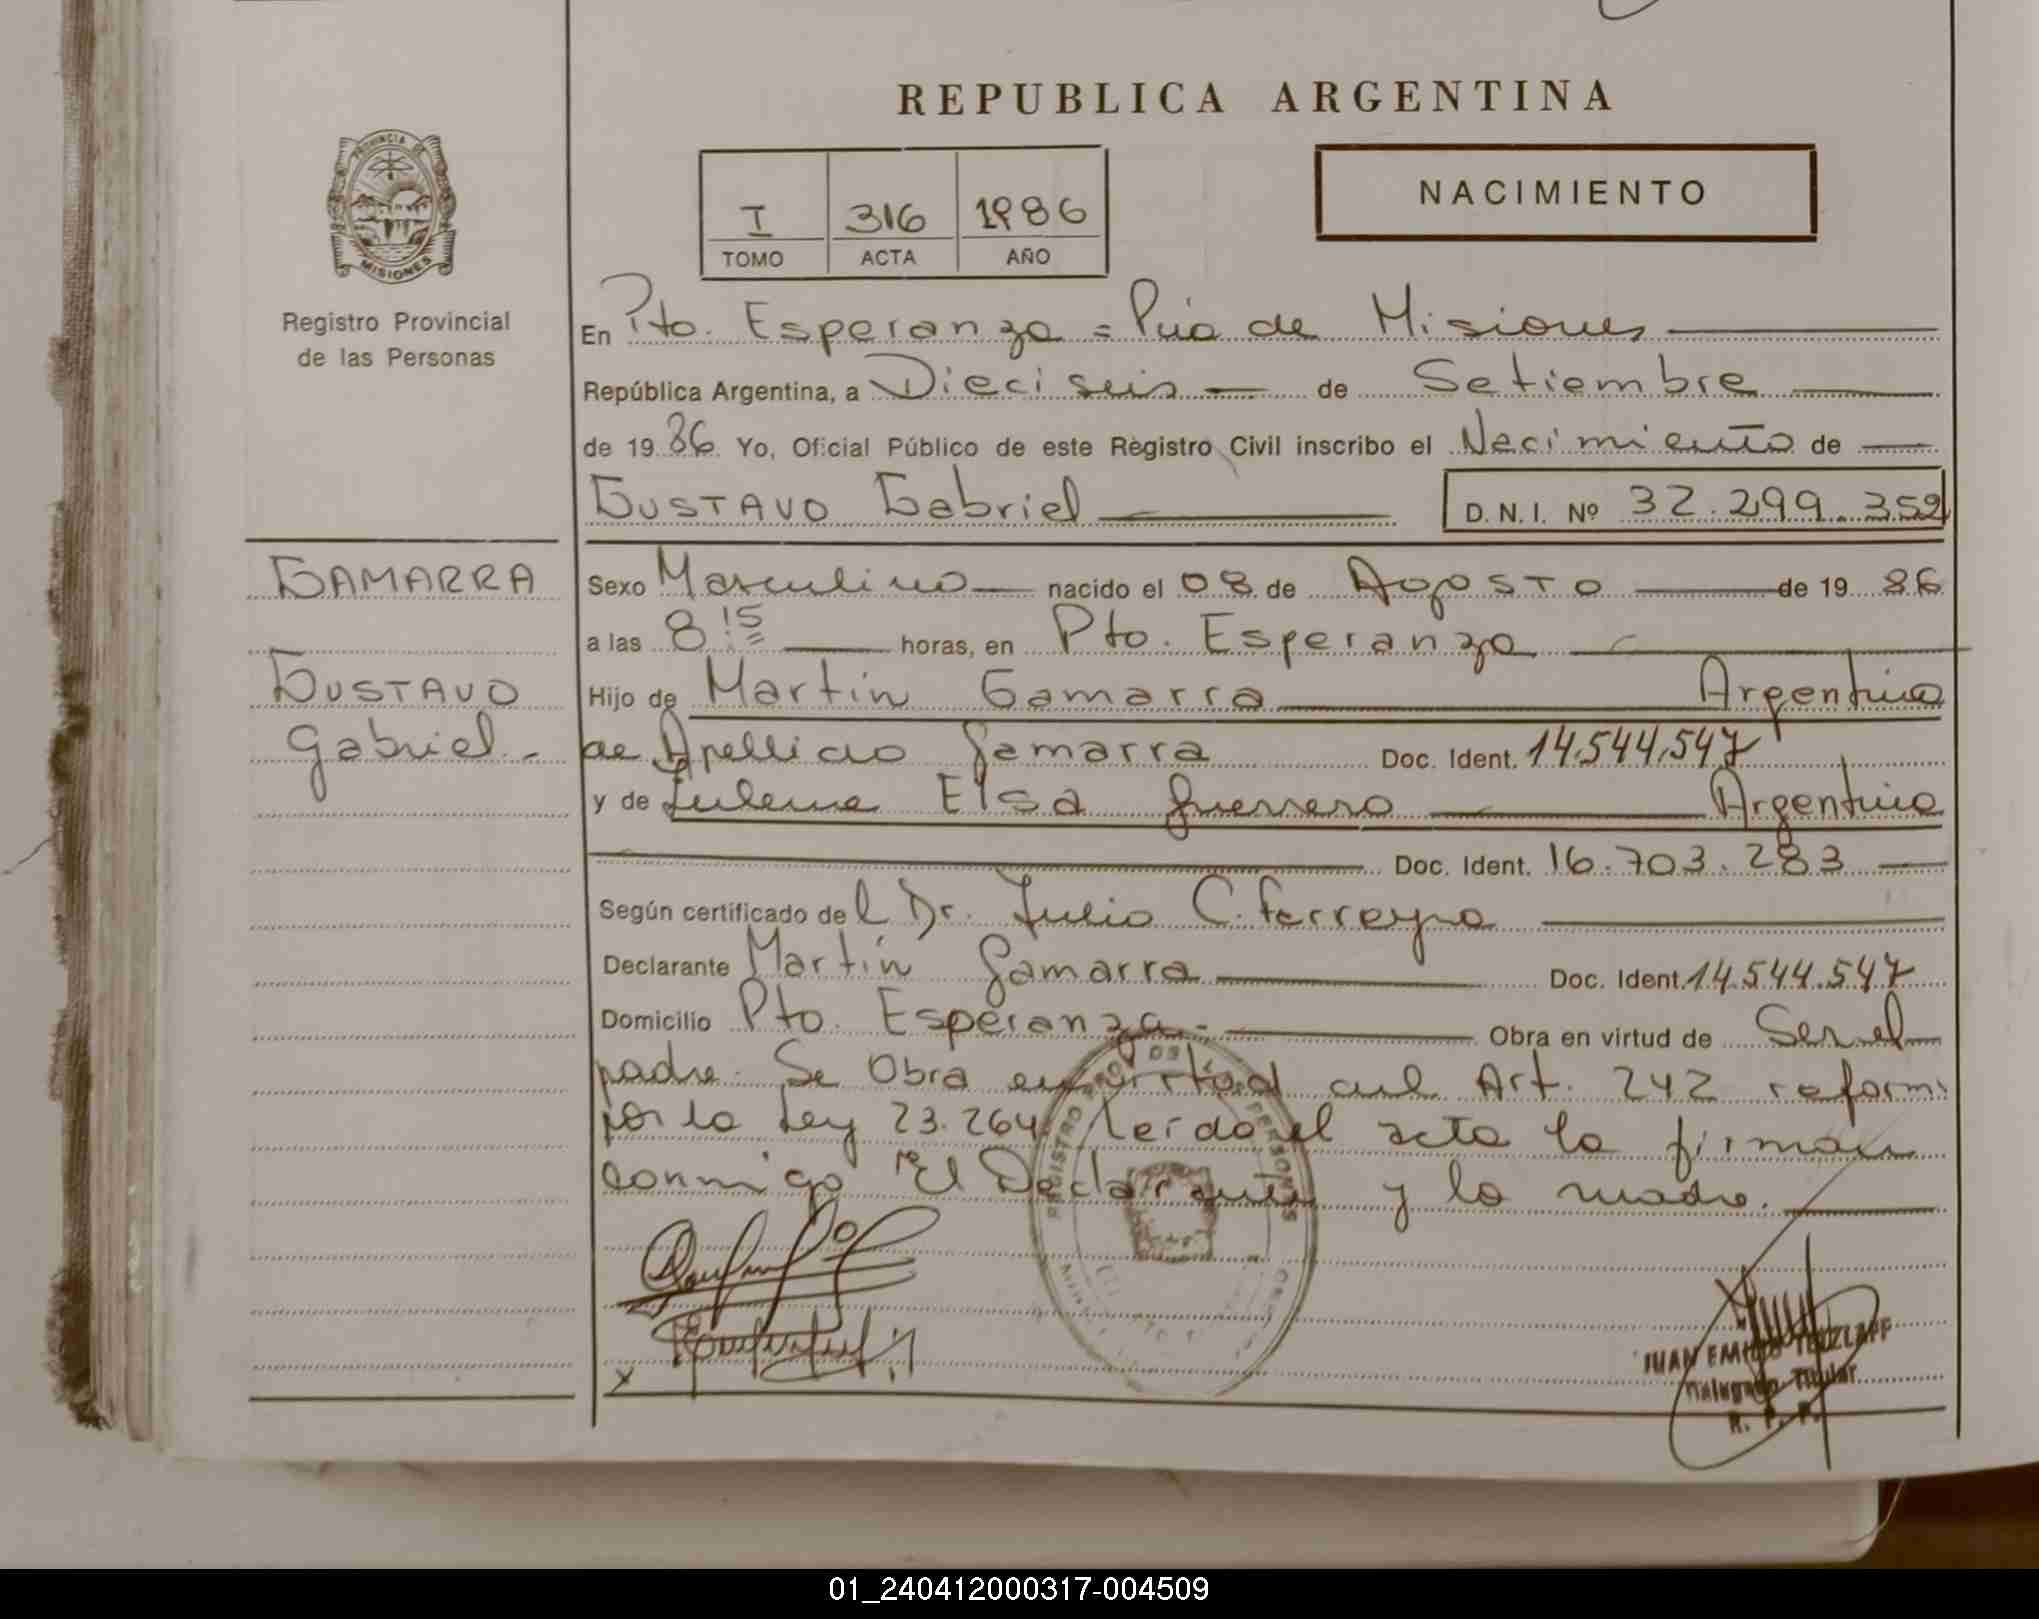 REPUBLICA ARGENTINA
PROVINCIA DE
MISIONES
Registro Provincial
de las Personas
I 316 1986
TOMO ACTA AÑO
NACIMIENTO
En Pto. Esperanza = Pcia de Misiones
República Argentina, a Dieciseis de Setiembre
de 19 86 Yo, Oficial Público de este Registro Civil inscribo el Nacimiento de
GUSTAVO Gabriel D. N. I. Nº 32.299.352
GAMARRA
GUSTAVO
Gabriel.-
Sexo Masculino nacido el 08 de Agosto de 19 86
a las 8 15 horas, en Pto. Esperanza
Hijo de Martín Gamarra Argentino
de Apellido Gamarra Doc. Ident. 14.544.547
y de Elsa Guerrero Argentina
Doc. Ident. 16.703.283
Según certificado del Dr. Julio C. Ferreyra
Declarante Martín Gamarra Doc. Ident. 14.544.547
Domicilio Pto. Esperanza.- Obra en virtud de Ser el
padre. Se Obra en virtud del Art. 242 reform.
por la Ley 23.264 Leída el acta la firman
conmigo El Declarante y la madre.
JUAN EMILIO
Delegado Titular
R. P. P.
01_240412000317-004509